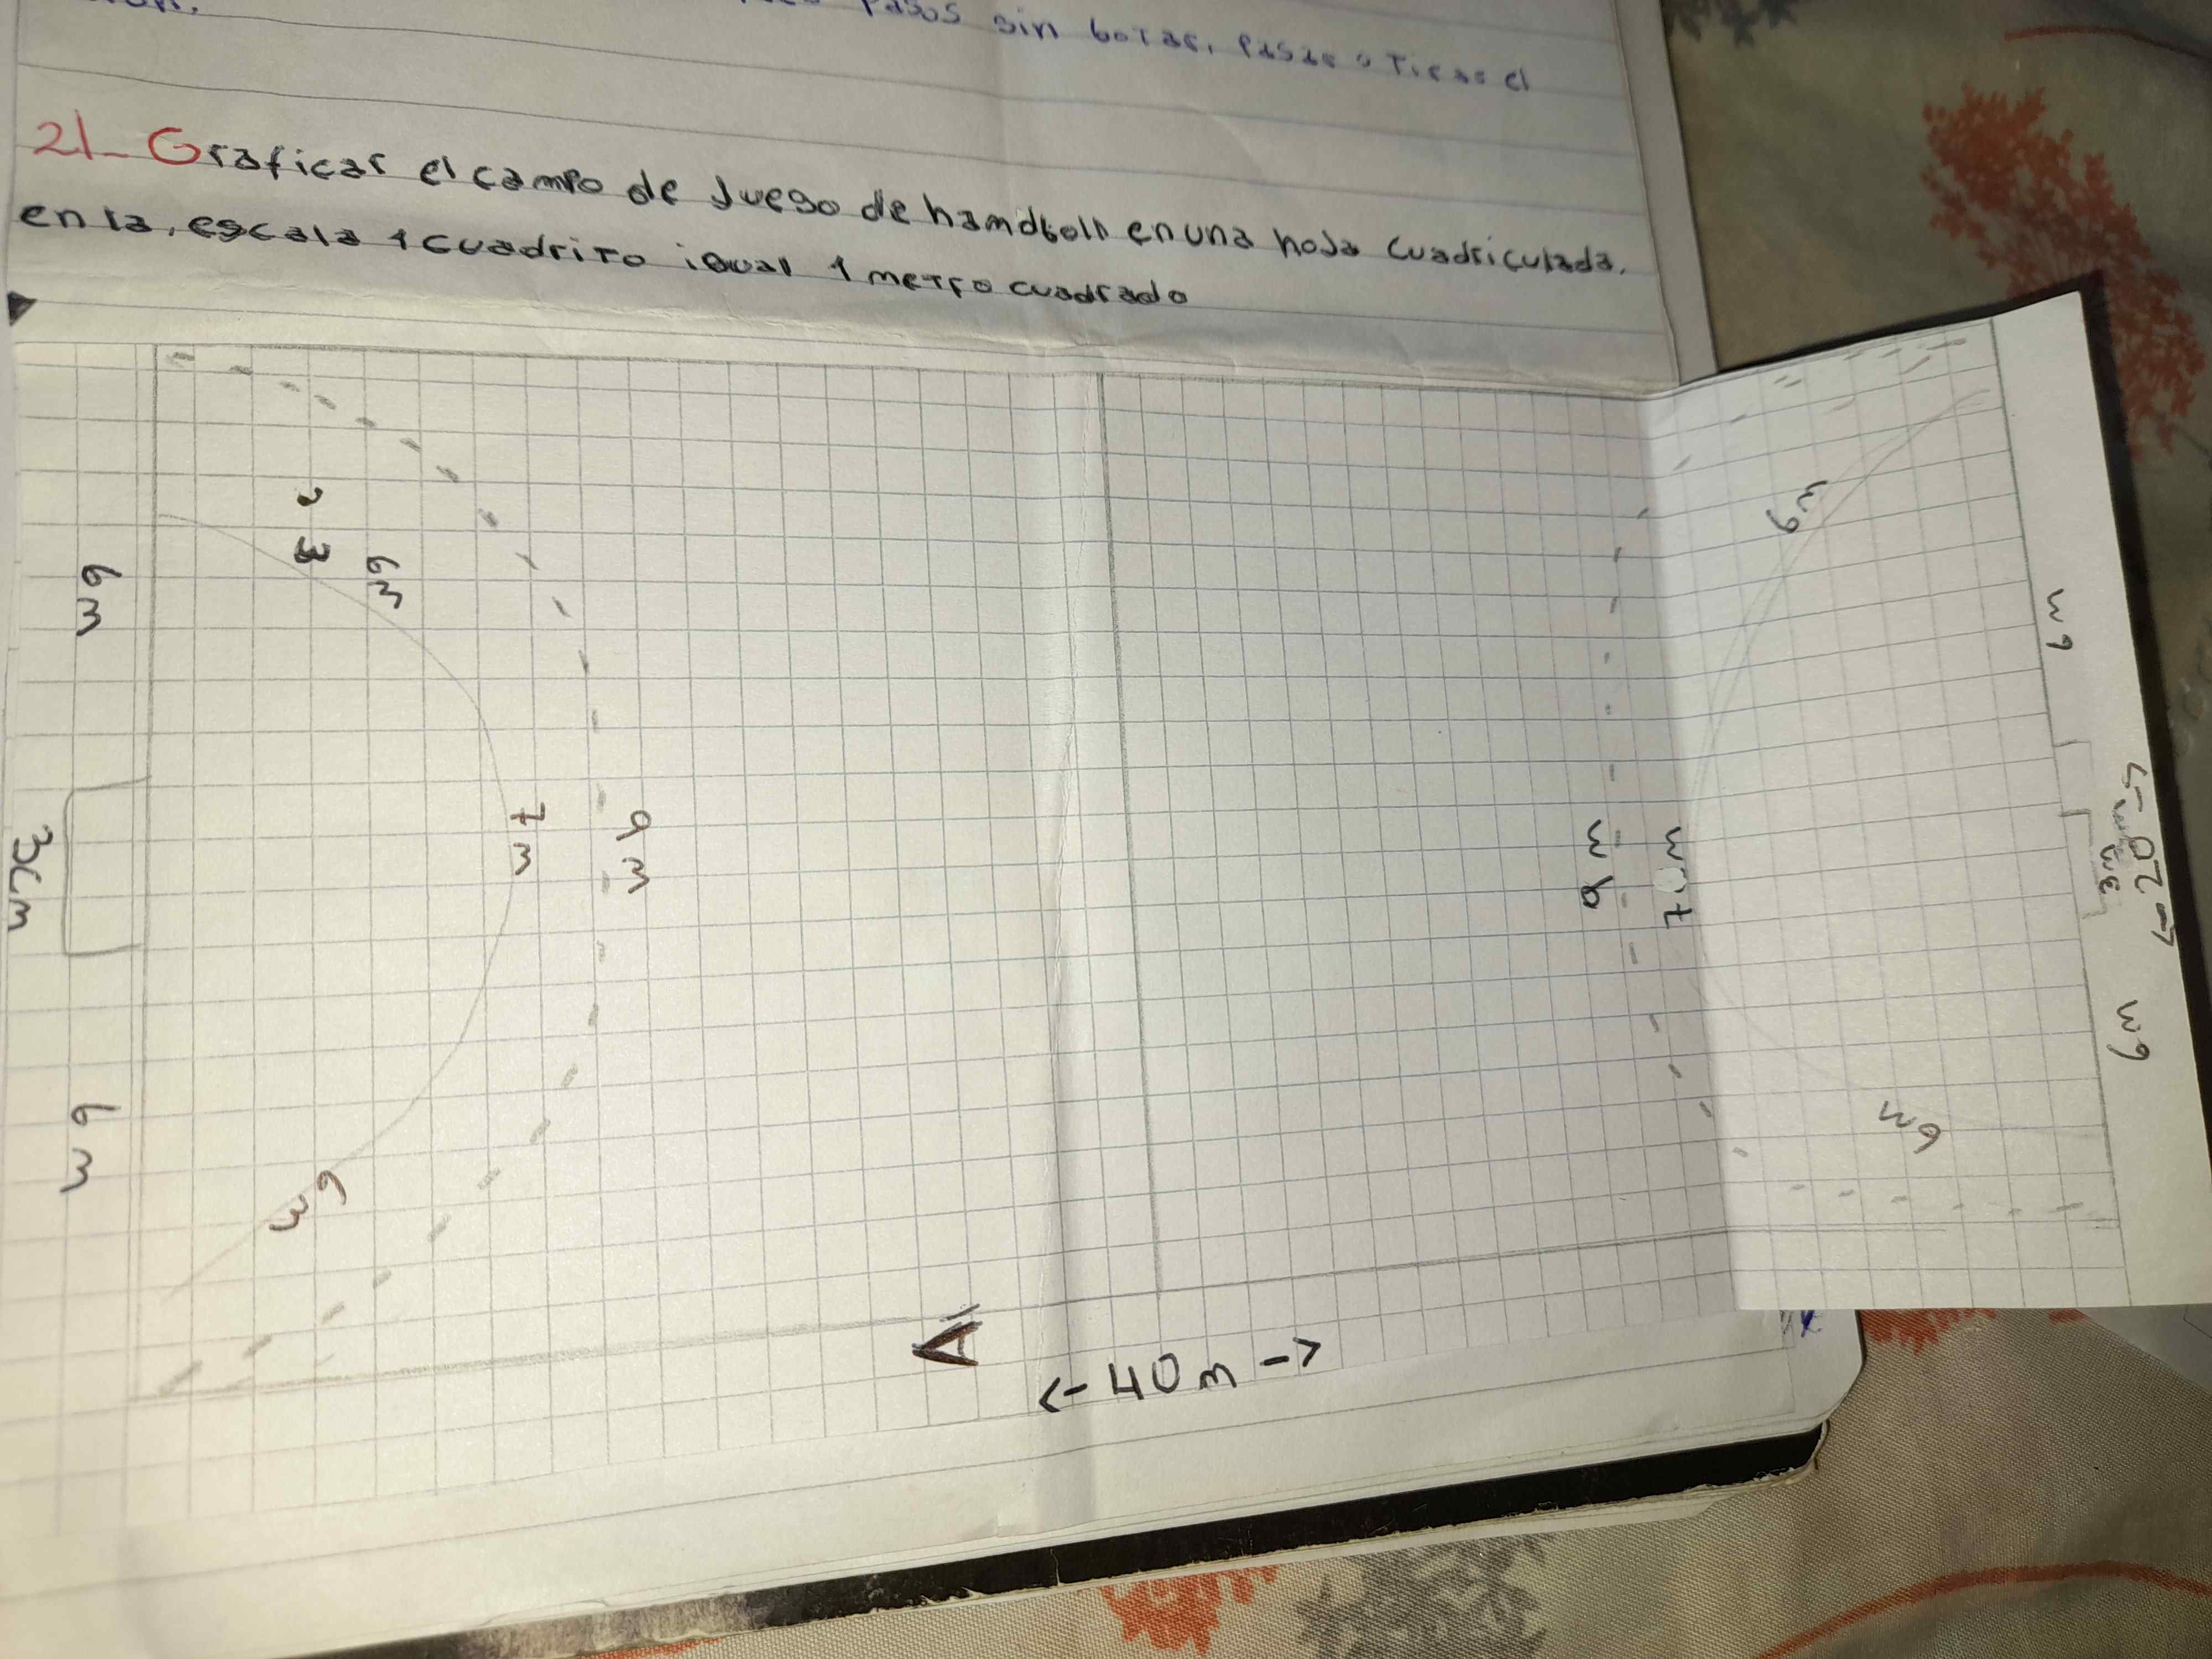 Pasos sin botar, Pasar o Tirar el
21- Graficar el campo de Juego de handboll en una hoja cuadriculada.
en la, escala 1 cuadrito igual 1 metro cuadrado
6m
3cm
6m
6m
7m
9m
6m
9m
7m
6m
6m
6m
3m
<-20->
6m
A
<- 40m ->